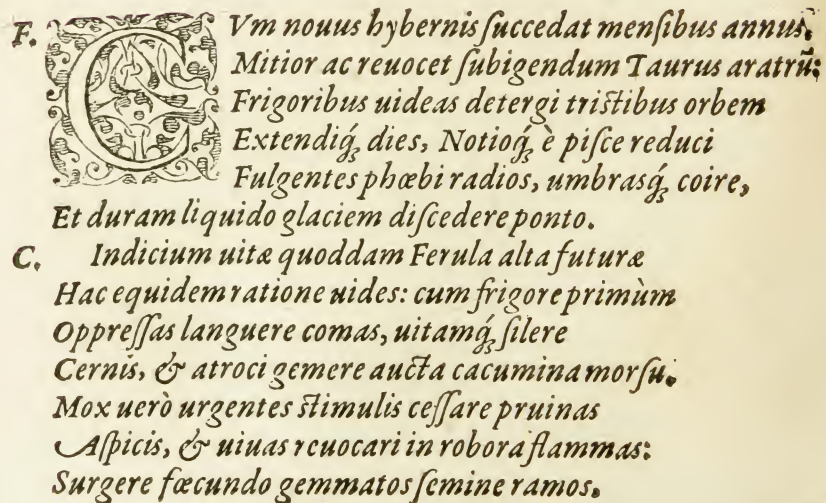 F. CVm nouus hybernis ſuccedat menſibus annus,
Mitior ac reuocet ſubigendum Taurus aratrũ:
Frigoribus uideas detergi triſtibus orbem
Extendiq́ꝫ dies, Notioq́ꝫ è piſce reduci
Fulgentes phœbi radios, umbrasq́ꝫ coire,
Et duram liquido glaciem diſcedere ponto.
C. Indicium uitæ quoddam Ferula alta futuræ
Hac equidem ratione uides: cum frigore primùm
Oppreſſas languere comas, uitamq́ꝫ ſilere
Cernis, & atroci gemere aucta cacumina morſu.
Mox uerò urgentes ſtimulis ceſſare pruinas
Aſpicis, & uiuas reuocari in robora flammas:
Surgere fœcundo gemmatos ſemine ramos.